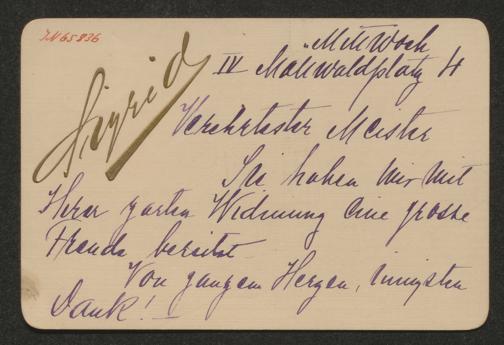 IN 65836
Mittwoch
IV Mollwaldplatz 4
Sigrid
Verehrtester Meister
Sie haben mir mit
Ihrer zarten Widmung eine grosse
Freude bereitet
Von ganzem Herzen, innigsten
Dank!